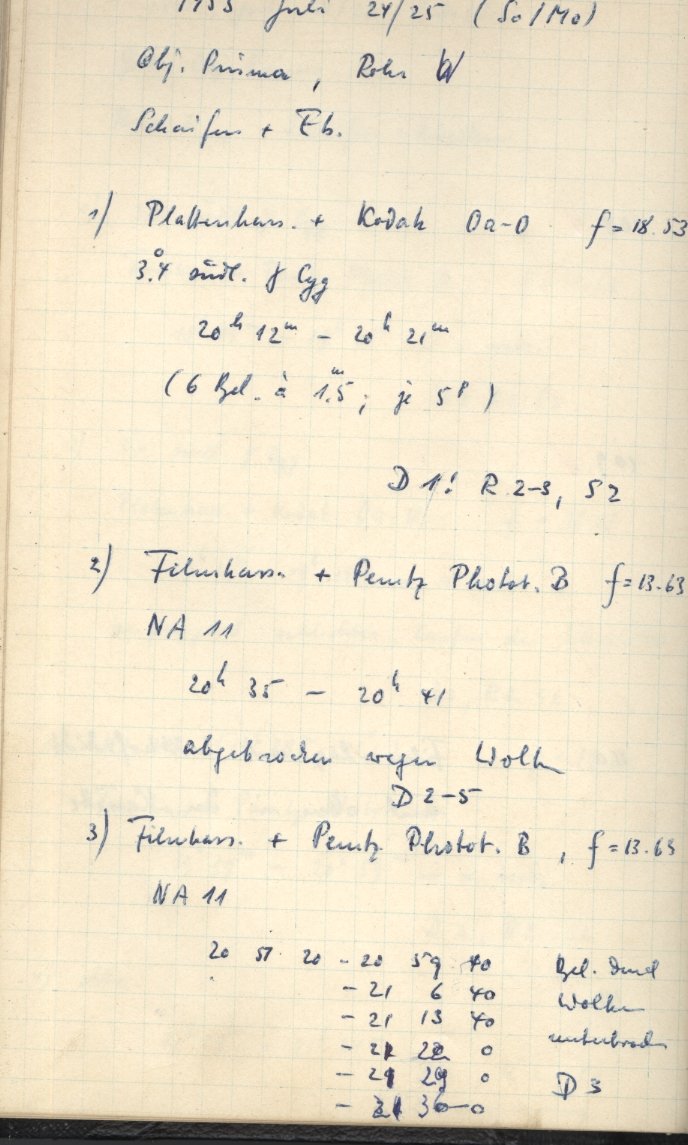 1955 Juli 24/25 (So/Mo)
Obj. Prisma, Rohr W
Schaifers + Eb.
1) Plattenkass. + Kodak Oa-O f = 18.53
3°.4 südl. γ Cyg
20h 12m – 20h 21m
(6 Bel. à 1m.5; je 5P)
D 1! R 2-3, S 2
2) Filmkass. + Perutz Photot. B f = 13.63
NA 11
20h 35 – 20h 41
abgebrochen wegen Wolken
D 2-5
3) Filmkass. + Perutz Photot. B, f = 13.63
NA 11
20 51 20 - 20 59 40 Bel. durch
- 21 6 40 Wolken
- 21 13 40 unterbrochen
- 21 22 0
- 21 29 0 D 3
- 21 36 0